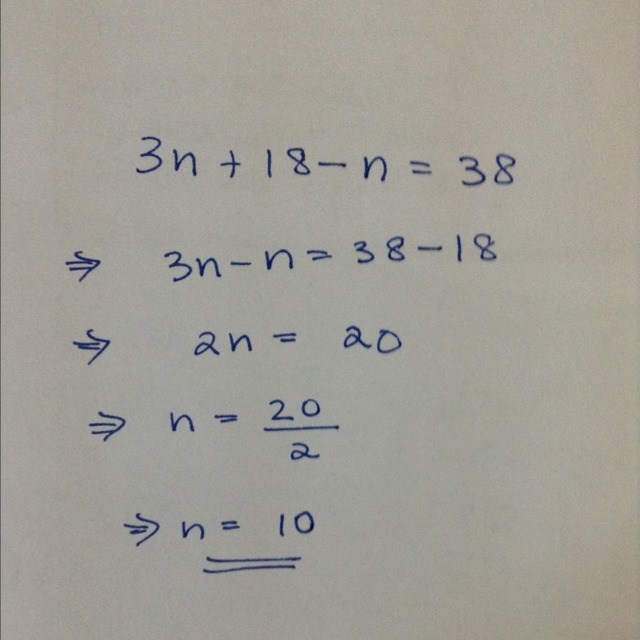 3n + 18 - n = 38
⇒ 3n - n = 38 - 18
⇒ 2n = 20
⇒ n = 20/2
⇒ n = 10